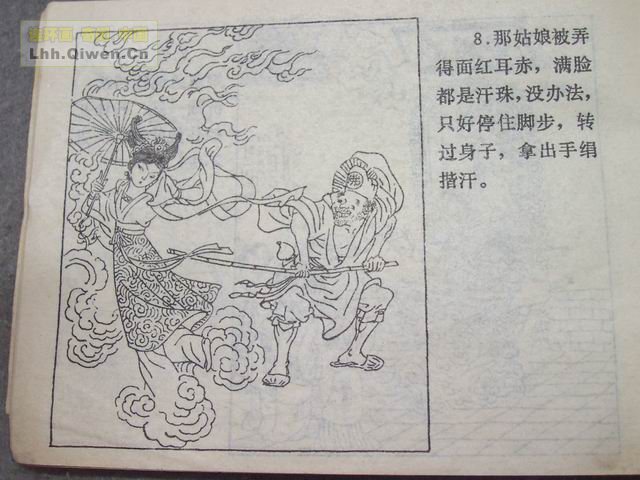 连环画 奇闻 中国
Lhh.Qiwen.Cn
8.那姑娘被弄
得面红耳赤，满脸
都是汗珠，没办法，
只好停住脚步，转
过身子，拿出手绢
揩汗。